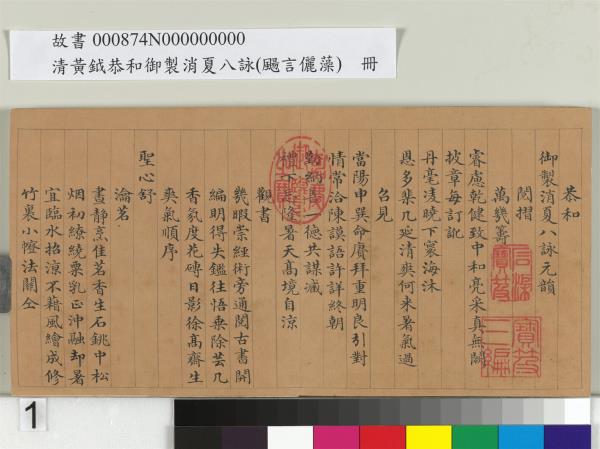 故書 000874N000000000
清黃鉞恭和御製消夏八詠(颺言儷藻) 冊
恭和
御製消夏八詠元韻
閱摺
萬幾籌
睿慮乾健致中和亮采真無闕
披章每訂訛
丹毫凌曉下寰海沐
恩多棐几延清爽何來暑氣過
召見
當陽申巽命賡拜重明良引對
情常洽陳謨語許詳終朝
勤納一德共謀臧
下暑天高境自涼
觀書
幾暇崇經術旁通閱古書開
編明得失鑑往悟乘除芸几
香氛度花磚日影徐高齋生
爽氣順序
聖心舒
瀹茗
晝靜烹佳茗香生石銚中松
烟初繚繞粟乳正沖融却暑
宜臨水招涼不藉風繪成修
竹裏小憕法關仝
石渠寶笈
寶笈三編
1